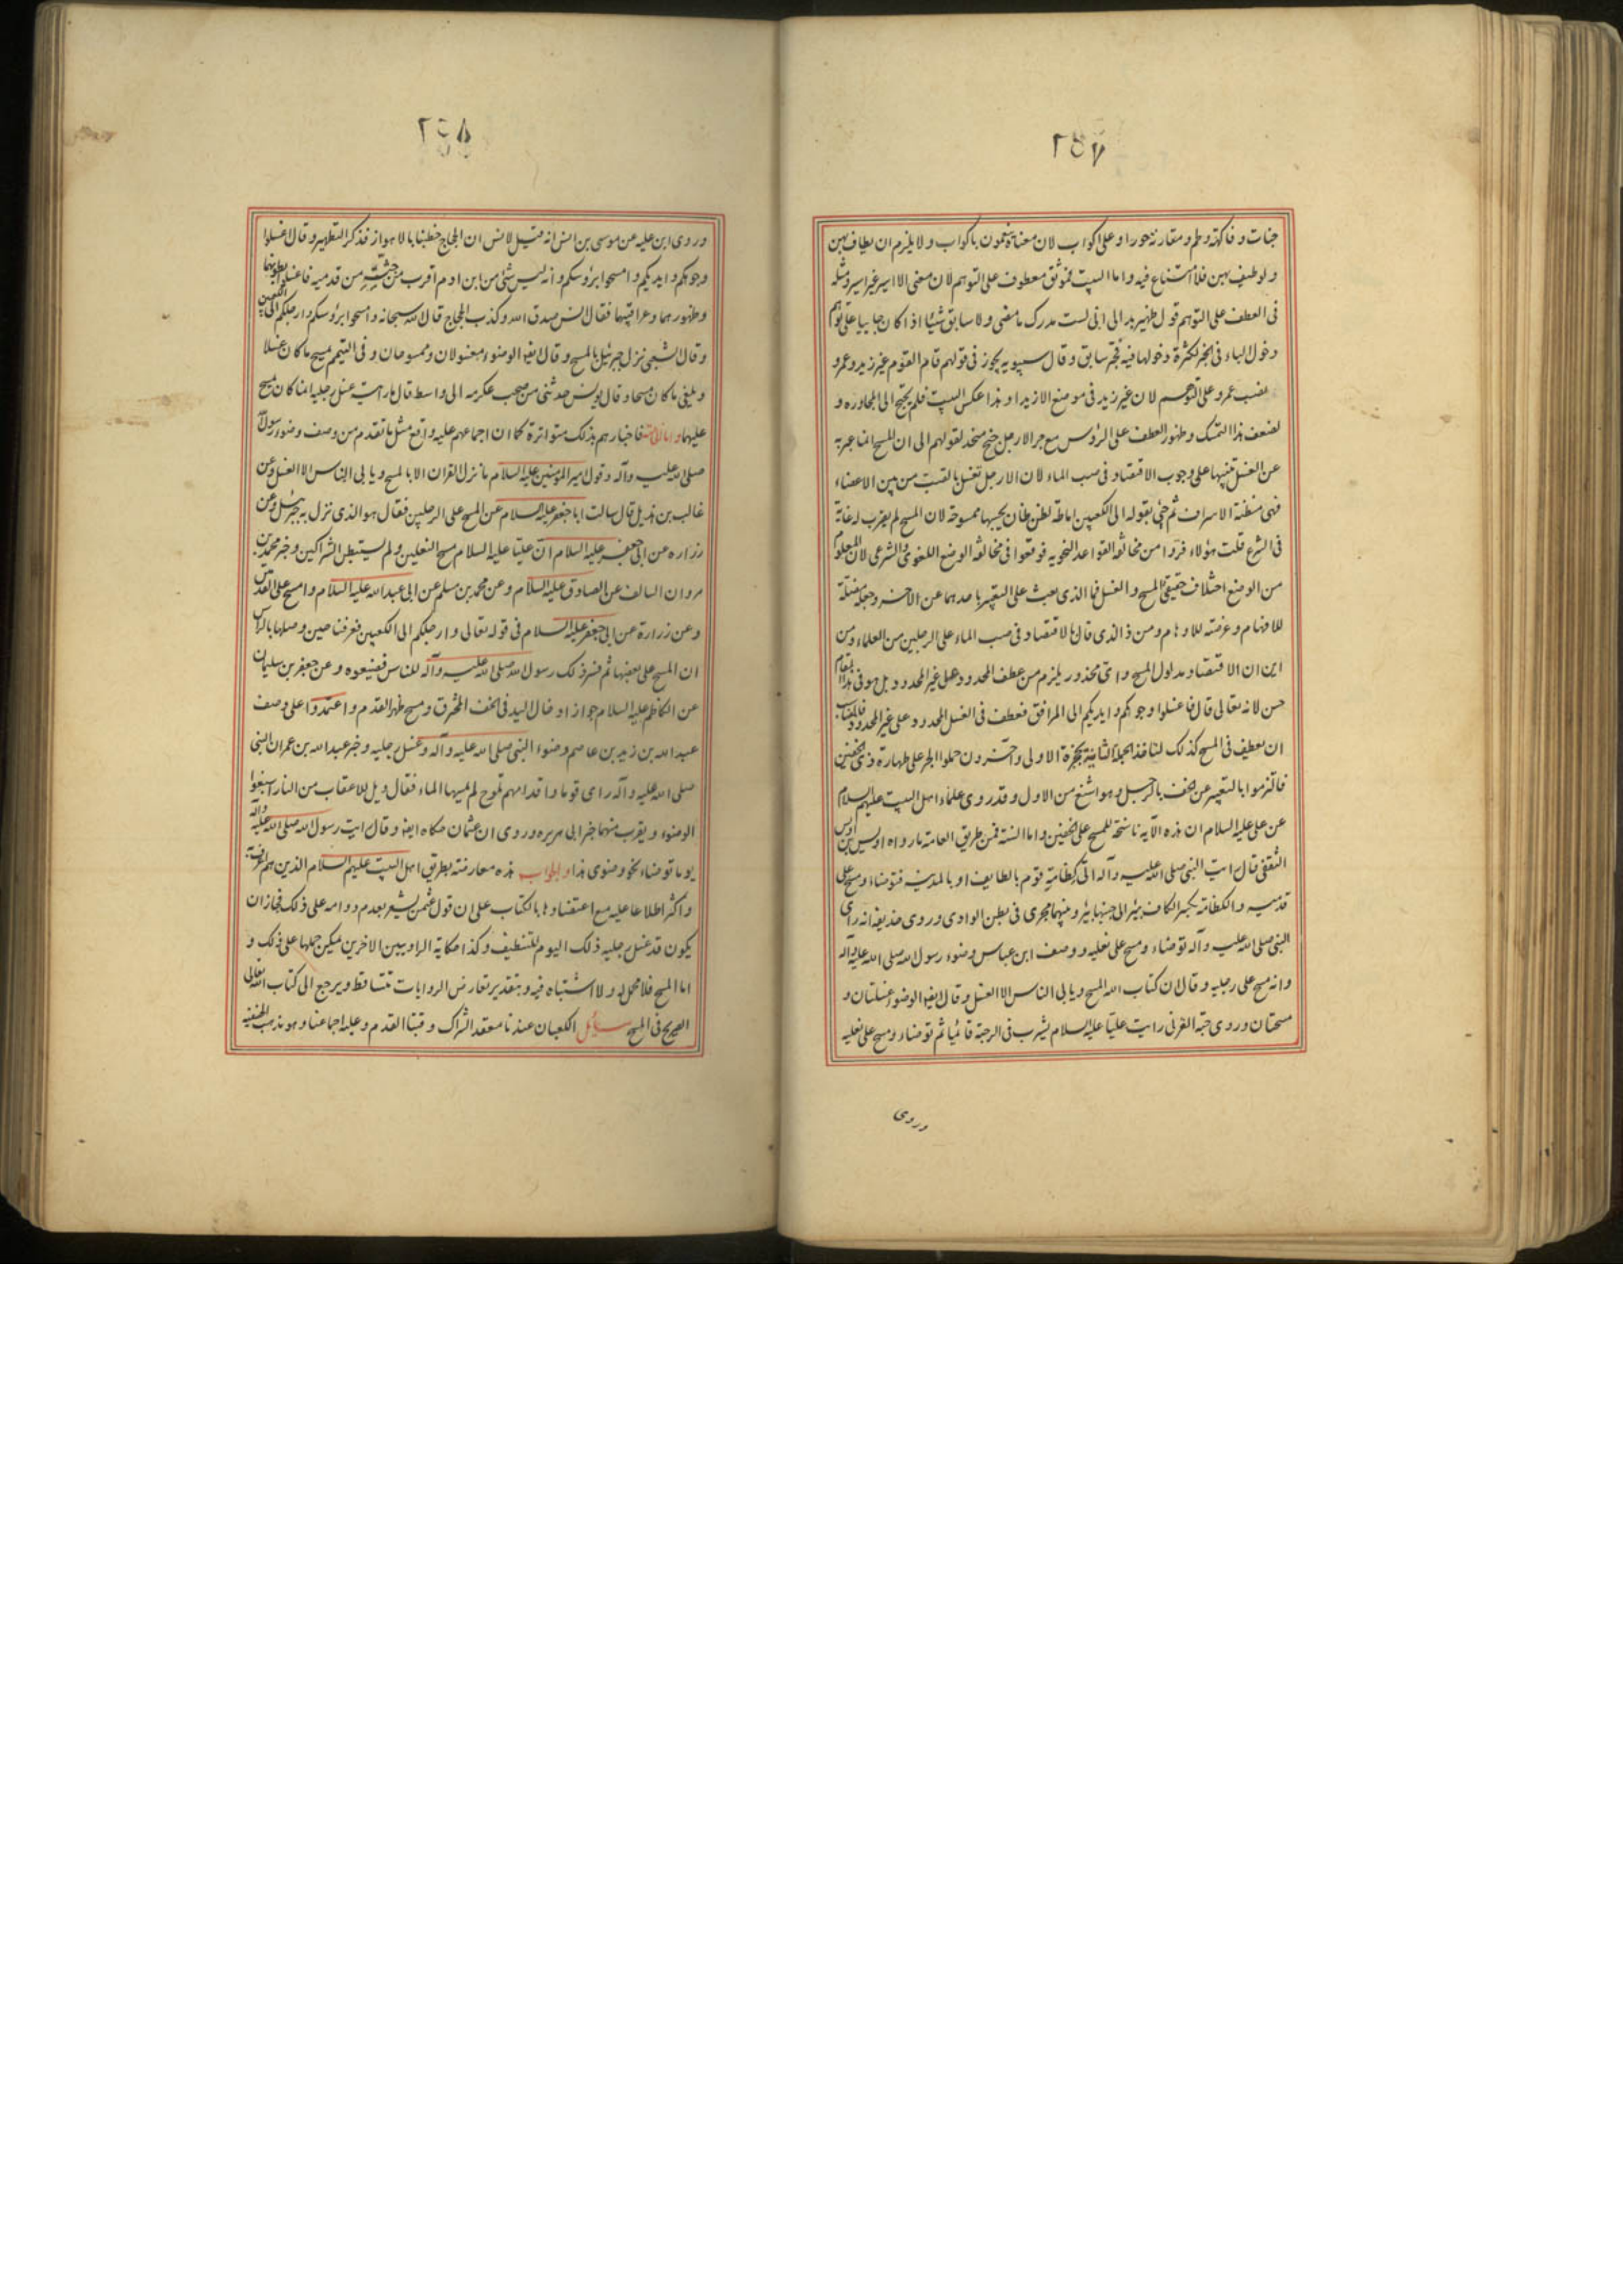 ٢٥٧
جنات و فاكهة و لحم و مقارنة حور او على اكواب لان معناه ينعمون باكواب و لا يلزم ان يطاف بهن
و لو طيف بهن فلا امتناع فيه و اما البيت فموثق معطوف على التوهم لان معنى الا اسير غير اسير و مثله
فى العطف على التوهم قول زهير بدا لى انى لست مدرك ما مضى و لا سابق شيئا اذا كان جائيا على توهم
دخول الباء فى الخبر لكثرة دخولها فيه فجر سابق و قال سيبويه يجوز فى قولهم قام القوم غير زيد و عمرو
بنصب عمرو على التوهم لان غير زيد فى موضع الا زيدا و هذا عكس البيت فلم يحتج الى المجاورة و
لضعف هذا التمسك و ظهور العطف على الرؤس مع جر الارجل جنح متحذلقوهم الى ان المسح انما عبر به
عن الغسل تنبيها على وجوب الاقتصاد فى صب الماء لان الارجل تغسل بالصب من بين الاعضاء
فهى مظنة الاسراف ثم جئ بقوله الى الكعبين اماطة لظن ظان يحسبها ممسوحة لان المسح لم يضرب له غاية
فى الشرع قلت هؤلاء فروا من مخالفة القواعد النحوية فوقعوا فى مخالفة الوضع اللغوى و الشرعى لان المعلوم
من الوضع اختلاف حقيقتى المسح و الغسل فما الذى يبعث على التعبير باحدهما عن الاخر و جعله مضلة
للافهام و عرضة للاوهام و من ذا الذى قال بالاقتصاد فى صب الماء على الرجلين من العلماء و من
اين ان الاقتصاد مدلول المسح و اى محذور يلزم من عطف المحدود على غير المحدود بل هو فى هذا المقام
حسن لانه تعالى قال فاغسلوا وجوهكم و ايديكم الى المرافق فعطف فى الغسل المحدود على غير المحدود فالمناسب
ان يعطف فى المسح كذلك لتنافذ الجملة الثانية بجزة الاولى و آخرون حملوا الجر على طهارة ذى الخفين
فالتزموا بالتعبير عن الخف بالرجل و هو اشنع من الاول و قد روى علماء اهل البيت عليهم السلام
عن على عليه السلام ان هذه الآية ناسخة للمسح على الخفين و اما السنة فمن طريق العامة ما رواه اوس بن اوس
الثقفى قال رايت النبى صلى الله عليه و آله اتى كظامة قوم بالطايف او بالمدينة فتوضاء و مسح على
قدميه و الكظامة بكسر الكاف بئر الى جنبها بئر و بينهما مجرى فى بطن الوادى و روى حذيفة انه راى
النبى صلى الله عليه و آله توضاء و مسح على نعليه و وصف ابن عباس وضوء رسول الله صلى الله عليه و آله
و انه مسح على رجليه و قال ان كتاب الله المسح و يابى الناس الا الغسل و قال ايضا الوضوء غسلتان و
مسحتان و روى حبة العرنى رايت عليا عليه السلام يشرب فى الرحبة قائما ثم توضاء و مسح على نعليه
و روى
٢٥٨
و روى ابن علية عن موسى بن انس انه قيل لانس ان الحجاج خطبنا بالاهواز فذكر التطهير و قال اغسلوا
وجوهكم و ايديكم و امسحوا برؤسكم و انه ليس شئ من ابن ادم اقرب من خبثه من قدميه فاغسلوا بطونهما
و ظهورهما و عراقيبهما فقال انس صدق الله و كذب الحجاج قال الله سبحانه و امسحوا برؤسكم و ارجلكم الى الكعبين
و قال الشعبى نزل جبرئيل بالمسح و قال ايضا الوضوء مغسولان و ممسوحان و فى التيمم يمسح ما كان غسلا
و يلغى ما كان مسحا و قال يونس حدثنى من صحب عكرمة الى واسط قال ما رايت غسل رجليه انما كان يمسح
عليهما و اما الخاصة فاخبارهم بذلك متواترة كما ان اجماعهم عليه واقع مثل ما تقدم من وصف وضوء رسول الله
صلى الله عليه و آله و قول امير المؤمنين عليه السلام ما نزل القران الا بالمسح و يابى الناس الا الغسل و عن
غالب بن هذيل قال سالت ابا جعفر عليه السلام عن المسح على الرجلين فقال هو الذى نزل به جبرئيل و عن
زرارة عن ابى جعفر عليه السلام ان عليا عليه السلام مسح النعلين و لم يستبطن الشراكين و خبر محمد بن
مروان السالف عن الصادق عليه السلام و عن محمد بن مسلم عن ابى عبد الله عليه السلام و امسح على القدمين
و عن زرارة عن ابى جعفر عليه السلام فى قوله تعالى و ارجلكم الى الكعبين فعرفنا حين وصلها بالراس
ان المسح على بعضها ثم فسر ذلك رسول الله صلى الله عليه و آله للناس فضيعوه و عن جعفر بن سليمان
عن الكاظم عليه السلام جواز ادخال اليد فى الخف المخرق و مسح ظهر القدم و اعتمدوا على وصف
عبد الله بن زيد بن عاصم وضوء النبى صلى الله عليه و آله و غسل رجليه و خبر عبد الله بن عمر ان النبى
صلى الله عليه و آله راى قوما و اقدامهم تلوح لم يمسها الماء فقال ويل للاعقاب من النار اسبغوا
الوضوء و يقرب منهما خبر ابى هريرة و روى ان عثمان حكاه ايضا و قال رايت رسول الله صلى الله عليه و آله
يوما توضاء نحو وضوئى هذا و الجواب هذه معارضة بطريق اهل البيت عليهم السلام الذين هم اعرف
و اكثر اطلاعا عليه مع اعتضادها بالكتاب على ان قول عثمان يشعر بعدم دوامه على ذلك فجاز ان
يكون قد غسل رجليه ذلك اليوم للتنظيف و كذا حكاية الراويين الاخرين يمكن حملها على ذلك و
اما المسح فلا محمل له و لا اشتباه فيه و بتقدير تعارض الروايات تتساقط و يرجع الى كتاب الله تعالى
الصريح فى المسح مسائل الكعبان عندنا معقد الشراك و قبتا القدم و عليه اجماعنا و هو مذهب الحنفية